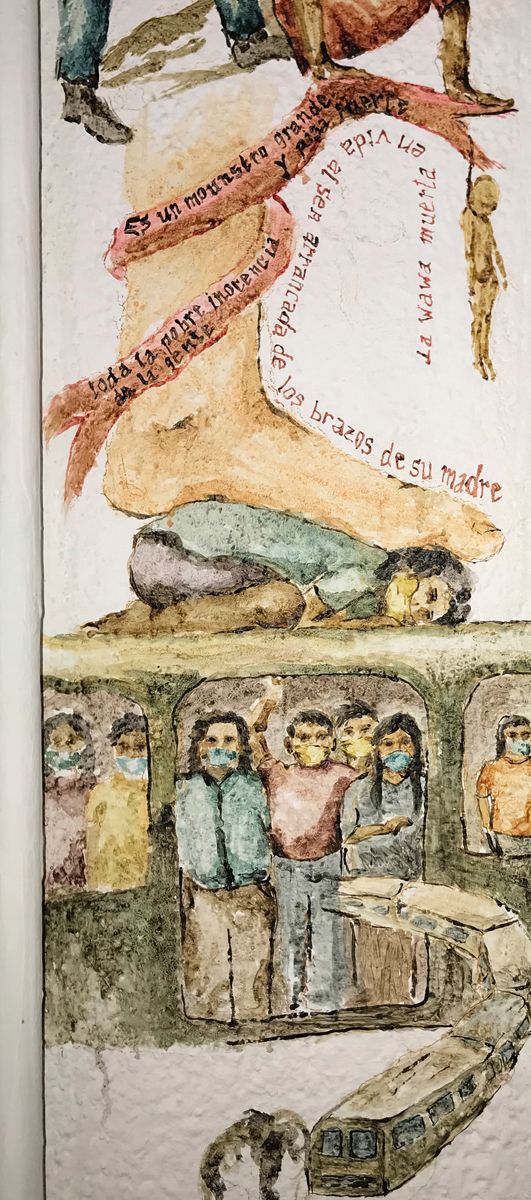 Es un mounstro grande
y pisa fuerte
toda la pobre inocencia
de la gente
La wawa muerta
en vida al ser arrancada de los brazos de su madre